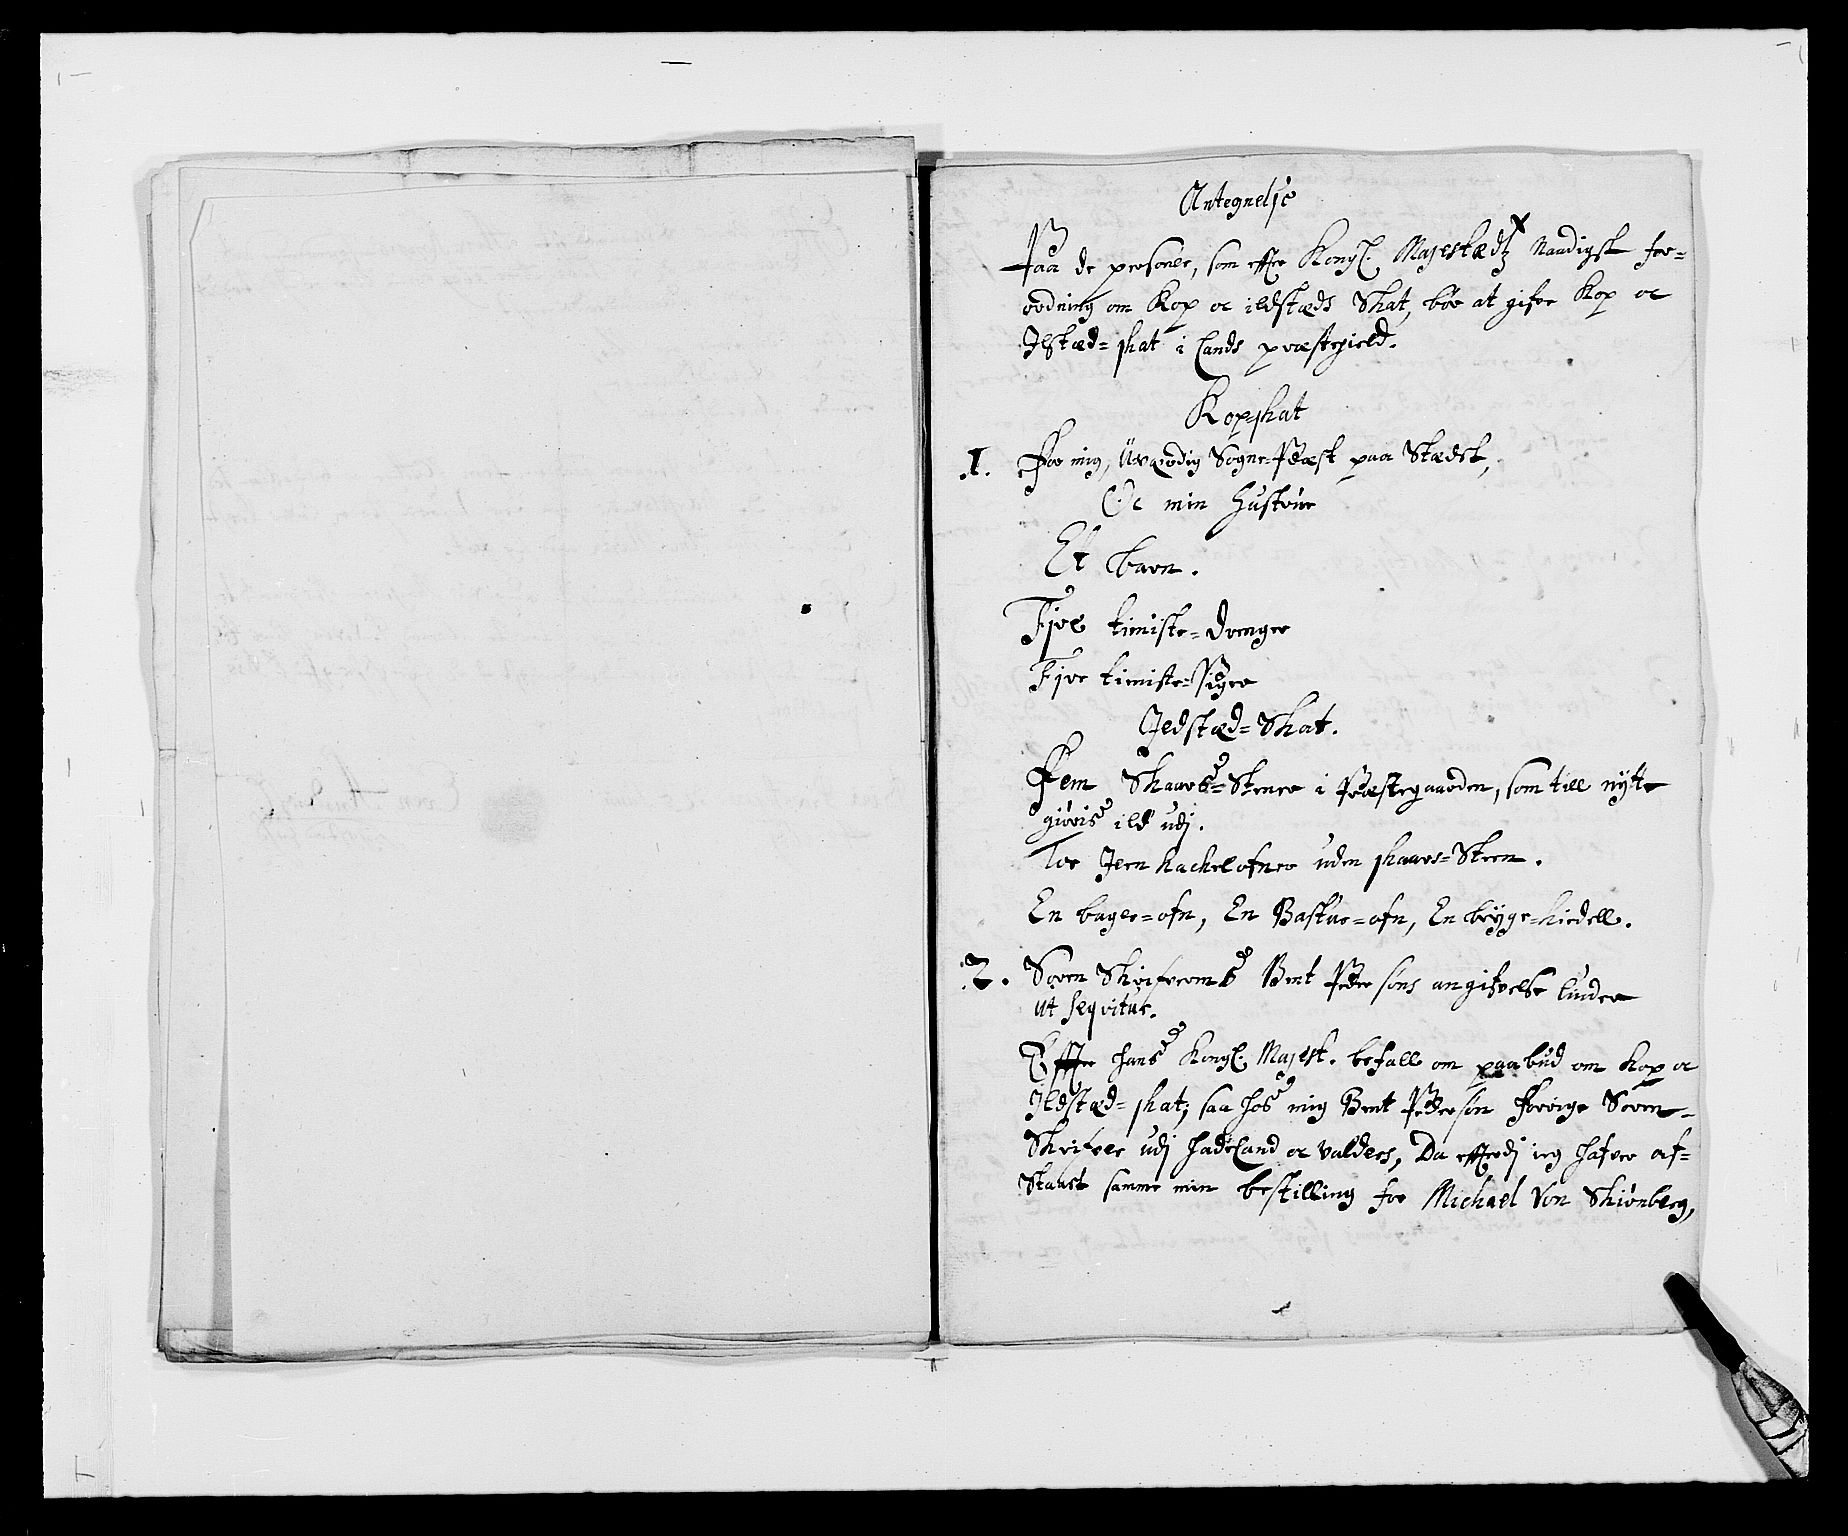 Antegnelse
Paa de personer, som effter Kongl. Majestædtz Naadigst for=
ordning om Kop oc ildstæds Skat, bør at gifve Kop oc
Ildstæd= skat i Lands præstegield.
Kop-skat
1. For mig, Uværdig Sogne-Præst paa Stædet,
Oc min Hustrue
Et barn.
Fire tieniste= drenger
Fire tieniste-Piger
Ildstæd= Skat.
Fem Skaarsteener i Præstegaarden, som till nytte
giøris ild udj.
Toe Jern kachelofner uden skaars= Steen.
En bager= ofn, En Bastue= ofn, En brygge= kiedell.
2. Soren Skrifverens Bent Pedersøns angifvelse liuder
ut seqvitur.
Effter hans Kongl. Majest. befall om paabud om Kop oc
Ildstæd= skat, saa hos mig Bent Pedersøn forrige Soren=
Skrifver udj Hadeland oc Valders, Da effterdj ieg hafver af=
Staaet samme min bestilling for Michael Von Skiønberg,